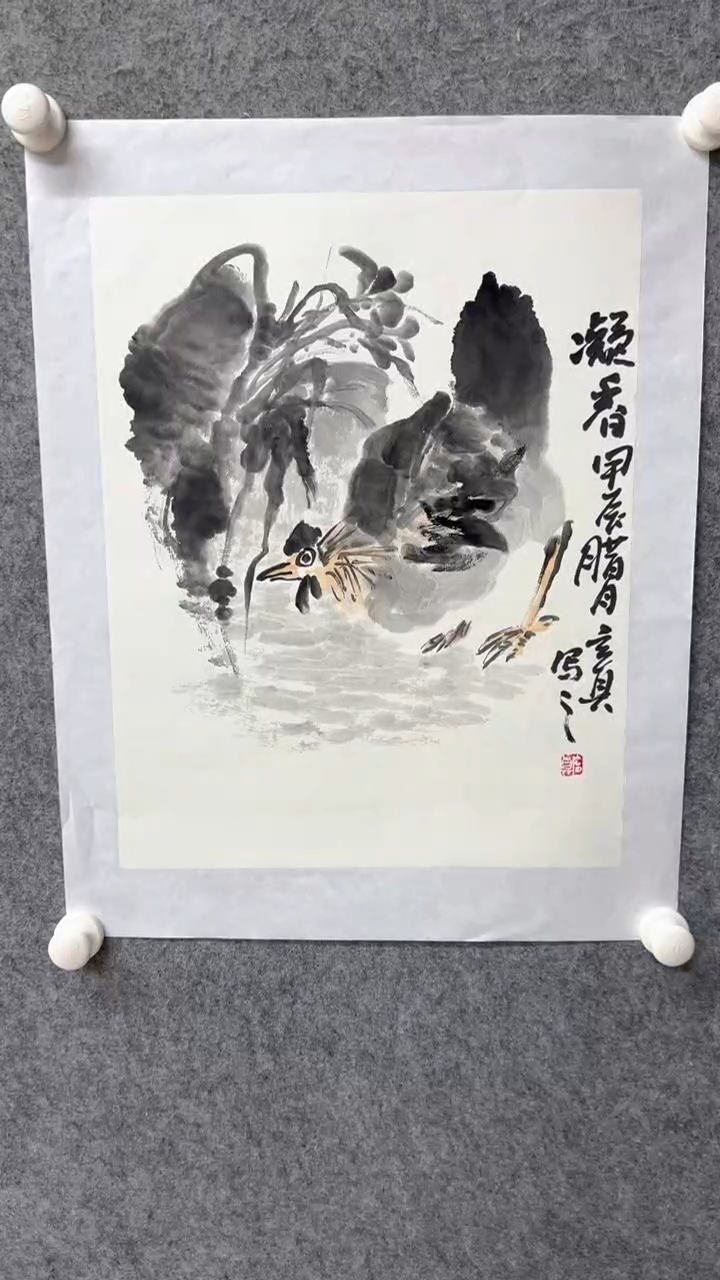 凝香甲辰腊月玄真
写之